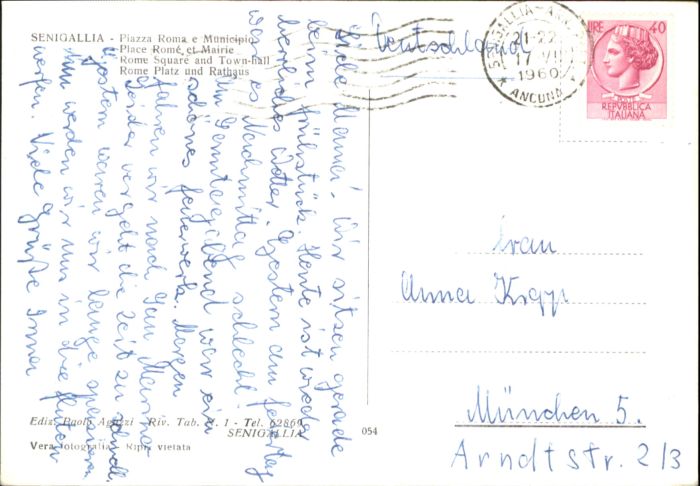 SENIGALLIA - Piazza Roma e Municipio
Place Rome et Mairie
Rome Square and Town-hall
Rome Platz und Rathaus
Deutschland
SENIGALLIA - ANCONA
21-22
17 VII
1960
* ANCONA *
LIRE 40
POSTE
REPVBBLICA
ITALIANA
Liebe Mama! Wir sitzen gerade
beim Frühstück. Heute ist wieder
herrliches Wetter. Gestern am Feiertag
war es Nachmittag schlecht
Am Samstagabend war ein
schönes Feuerwerk. Morgen
fahren wir nach San Marino
Leider vergeht die Zeit zu schnell.
Gestern waren wir lange spazieren
Nun werden wir uns in die Fluten
werfen. Viele Grüße
Frau
Anna
München 5.
Arndtstr. 2/3
Ediz. Paolo - Riv. Tab. N. 1 - Tel. 62869
SENIGALLIA
054
Vera fotografia - Ripr. vietata